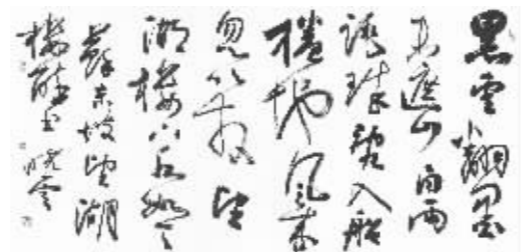 黑雲翻墨
未遮山白雨
跳珠亂入船
捲地風來
忽吹散望
湖樓下水如天
蘇東坡望湖
樓醉書